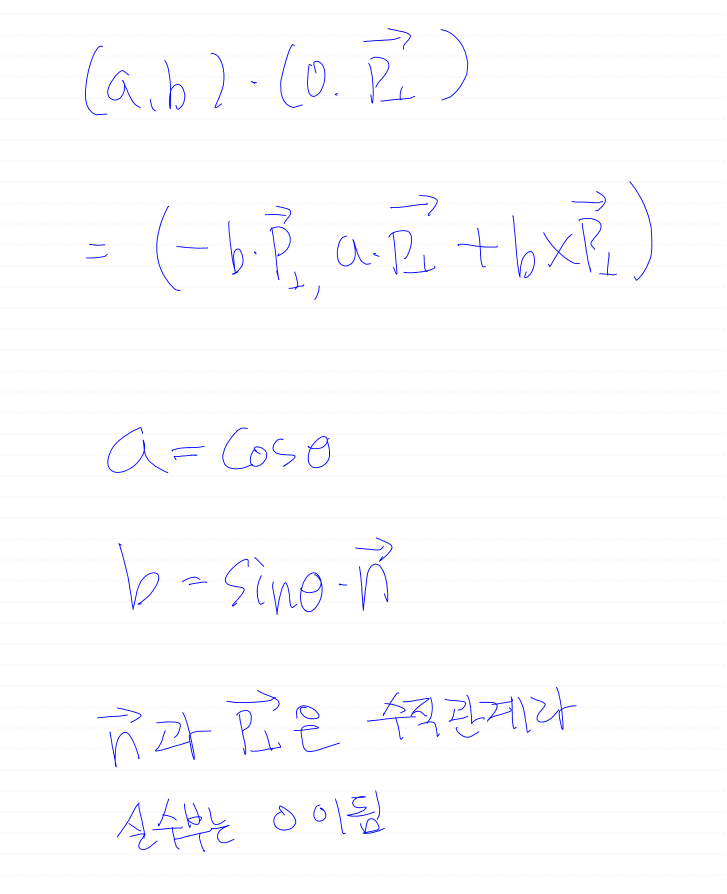 (a, b) · (0. \vec{P_⊥})
= (-b·\vec{P}_⊥, a·\vec{P_⊥} + b×\vec{P}_⊥)
a = cosθ
b = sinθ·\vec{n}
\vec{n}과 \vec{P_⊥}은 수직관계라
실수부는 0이됨